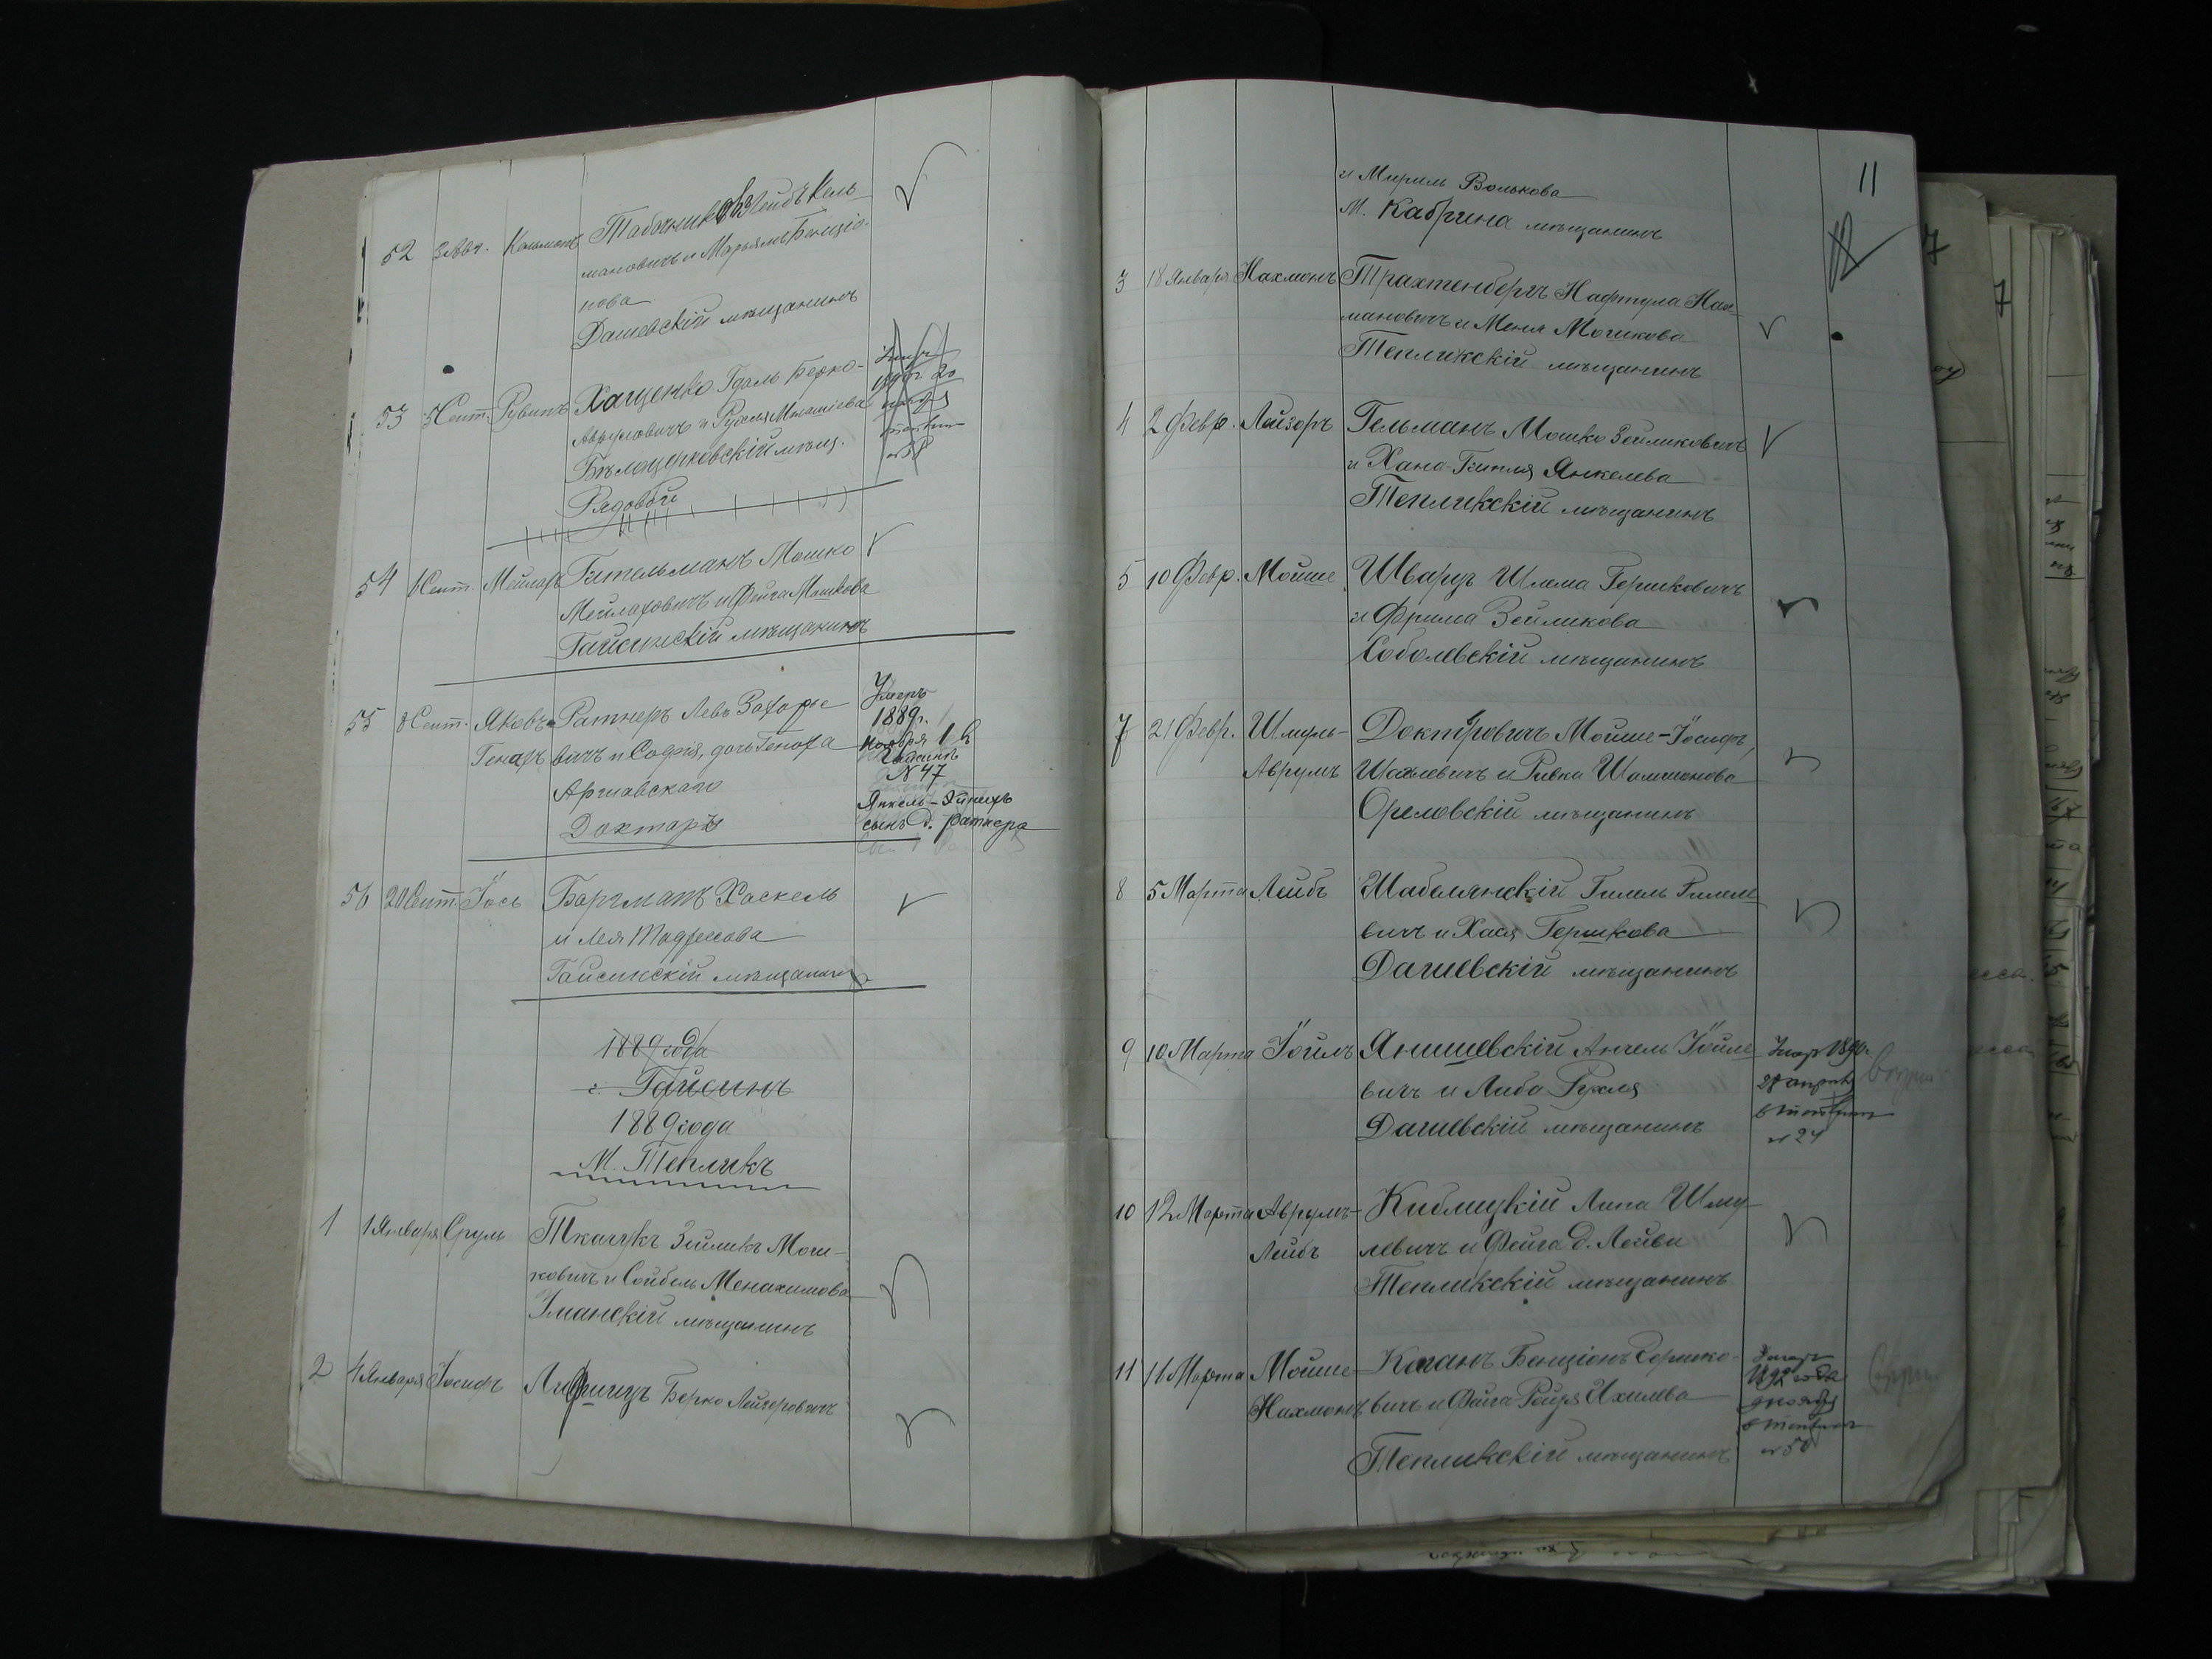 52 Кельманъ Табачникъ Лейбъ Кель-
мановичъ и Марьямъ Бенціо-
нова
Дашевскій мѣщанинъ
53 5 Сент. Рувинъ Хащенко Гдаль Берко-
Аврумовичъ и Рухля
Бѣлоцерковскій мѣщ.
Рядовой
54 6 Сент. Мейлахъ Гительманъ Мошко
Мейлаховичъ и Фейга Мошкова
Гайсинскій мѣщанинъ
55 8 Сент. Яковъ- Ратнеръ Левъ Захарье
Генахъ вичъ и Софія, дочь Геноха
Аршавскаго
Докторъ
Умеръ
1889 г.
Ноября 1 в
Гайсинѣ
№ 47
Янкель-
сынъ д. Ратнера
56 20 Сент. Іось Баргманъ Хаскель
и Лея
Гайсинскій мѣщанинъ
1889 года
г. Гайсинъ
1889 года
М. Тепликъ
1 1 Января Сруль Ткачукъ Зейликъ Мош-
ковичъ и Сойбель Менахимова
Уманскій мѣщанинъ
2 4 Января Іосифъ Лифшицъ Берко Лейзеровичъ
11
и Мирим Волькова
М. Кабрина мѣщанинъ
3 18 Января Нахманъ Трахтенбергъ Нафтула Нах-
мановичъ и Меня Мошкова
Тепликскій мѣщанинъ
4 2 Февр. Лейзоръ Гельманъ Мошко Зейликовичъ
и Хана-Гитля Янкелева
Тепликскій мѣщанинъ
5 10 Февр. Мойше Шварцъ Шлема Гершковичъ
и Фрима Зейликова
Соболевскій мѣщанинъ
7 21 Февр. Шмуль- Докторовичъ Мойше-Іосифъ
Аврумъ и Ривка Шамшонова
Ореловскій мѣщанинъ
8 5 Марта Лейбъ Шабелянскій Гилель Гилеле
вичъ и Хася Гершкова
Дашевскій мѣщанинъ
9 10 Марта Іойлъ Янишевскій Анчель Іойле
вичъ и Либа Рухля
Дашевскій мѣщанинъ
Умеръ 1890 г.
28 апрѣля
№ 24
10 12 Марта Аврумъ- Киблицкій Липа Шму-
Лейбъ левичъ и Фейга д. Лейви
Тепликскій мѣщанинъ
11 11 Марта Мойше- Коганъ Бенціонъ Сорико-
Нахманъ вичъ и Фейга-Ройзя Ихилева
Тепликскій мѣщанинъ
Умеръ
1892 года
№ 50